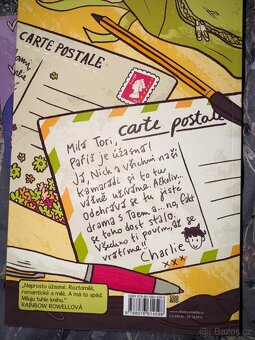 CARTE POSTALE
carte postale
Milá Tori,
Paříž je úžasná!
Já, Nick a všichni naši
kamarádi si to tu
vážně užíváme. Ačkoliv...
odehrává se tu jisté
drama s Taem a... no, fakt
se toho dost stalo.
Všechno ti povím, až se
vrátíme!!
Charlie
xxx
„Naprosto úžasné. Roztomilé,
romantické a milé. A má to spád.
Miluju tuhle knihu."
RAINBOW ROWELLOVÁ
Bazos.cz